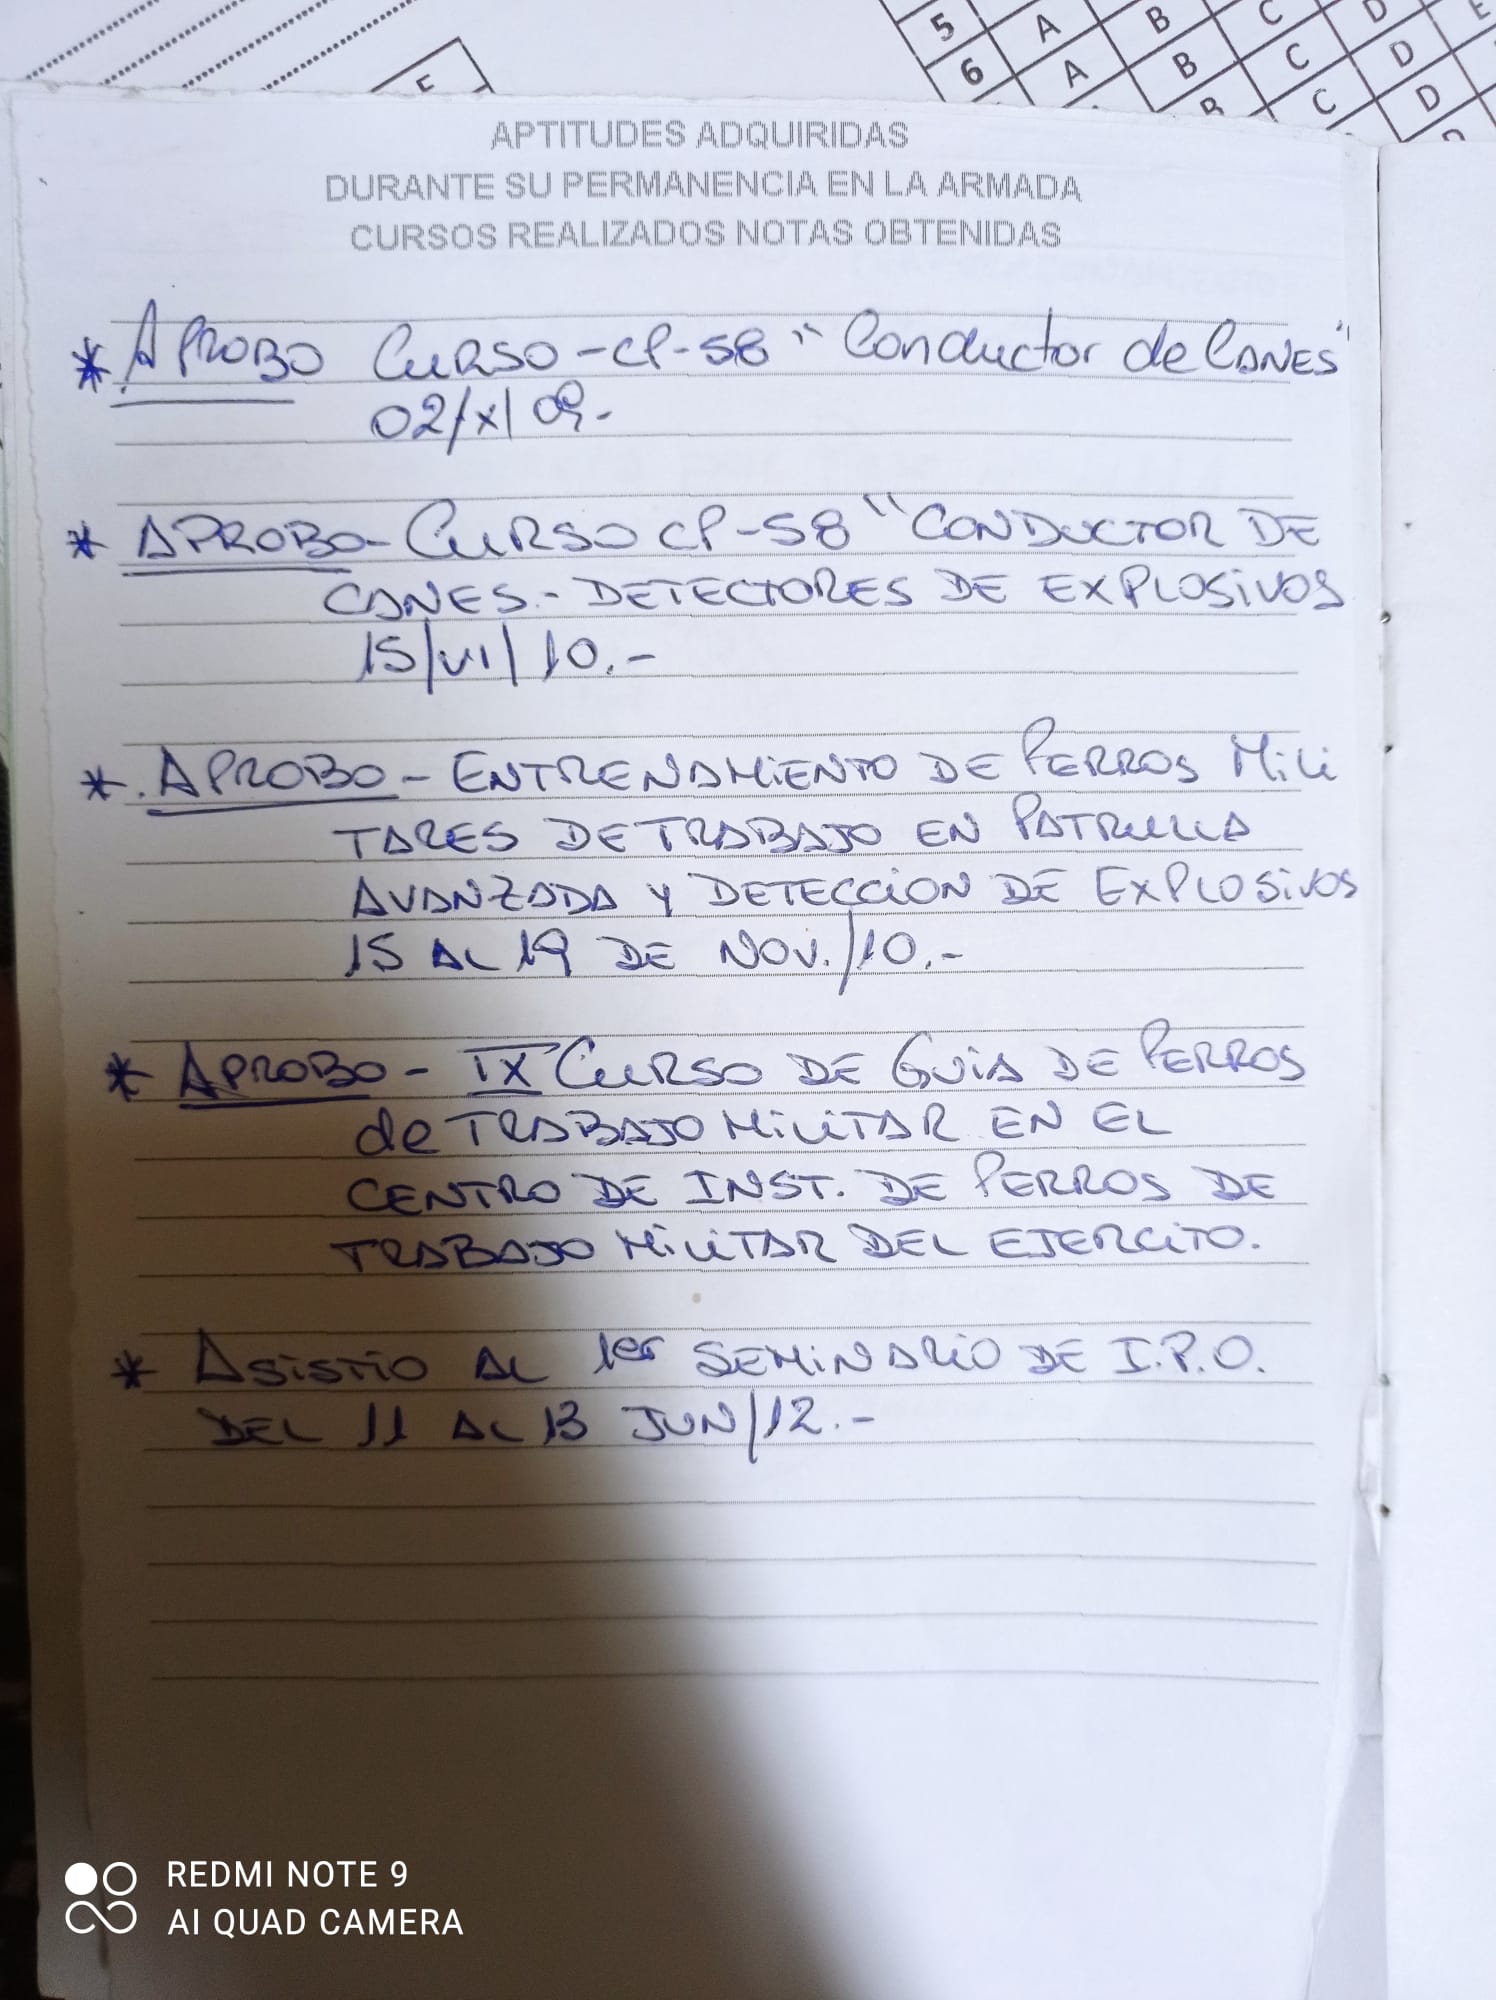 5 A B C D E
6 A B C D
B C D
E
APTITUDES ADQUIRIDAS
DURANTE SU PERMANENCIA EN LA ARMADA
CURSOS REALIZADOS NOTAS OBTENIDAS
* APROBO CURSO-CP-58 "Conductor de CANES"
02/X/09.-
* APROBO- CURSO CP-58 "CONDUCTOR DE
CANES.- DETECTORES DE EXPLOSIVOS
15/VI/10.-
*. APROBO - ENTRENAMIENTO DE PERROS MILI
TARES DE TRABAJO EN PATRULLA
AVANZADA Y DETECCION DE EXPLOSIVOS
15 AL 19 DE NOV./10.-
* APROBO - IX CURSO DE GUIA DE PERROS
de TRABAJO MILITAR EN EL
CENTRO DE INST. DE PERROS DE
TRABAJO MILITAR DEL EJERCITO.
* ASISTIO AL 1er SEMINARIO DE I.P.O.
DEL 11 AL 13 JUN/12.-
REDMI NOTE 9
AI QUAD CAMERA